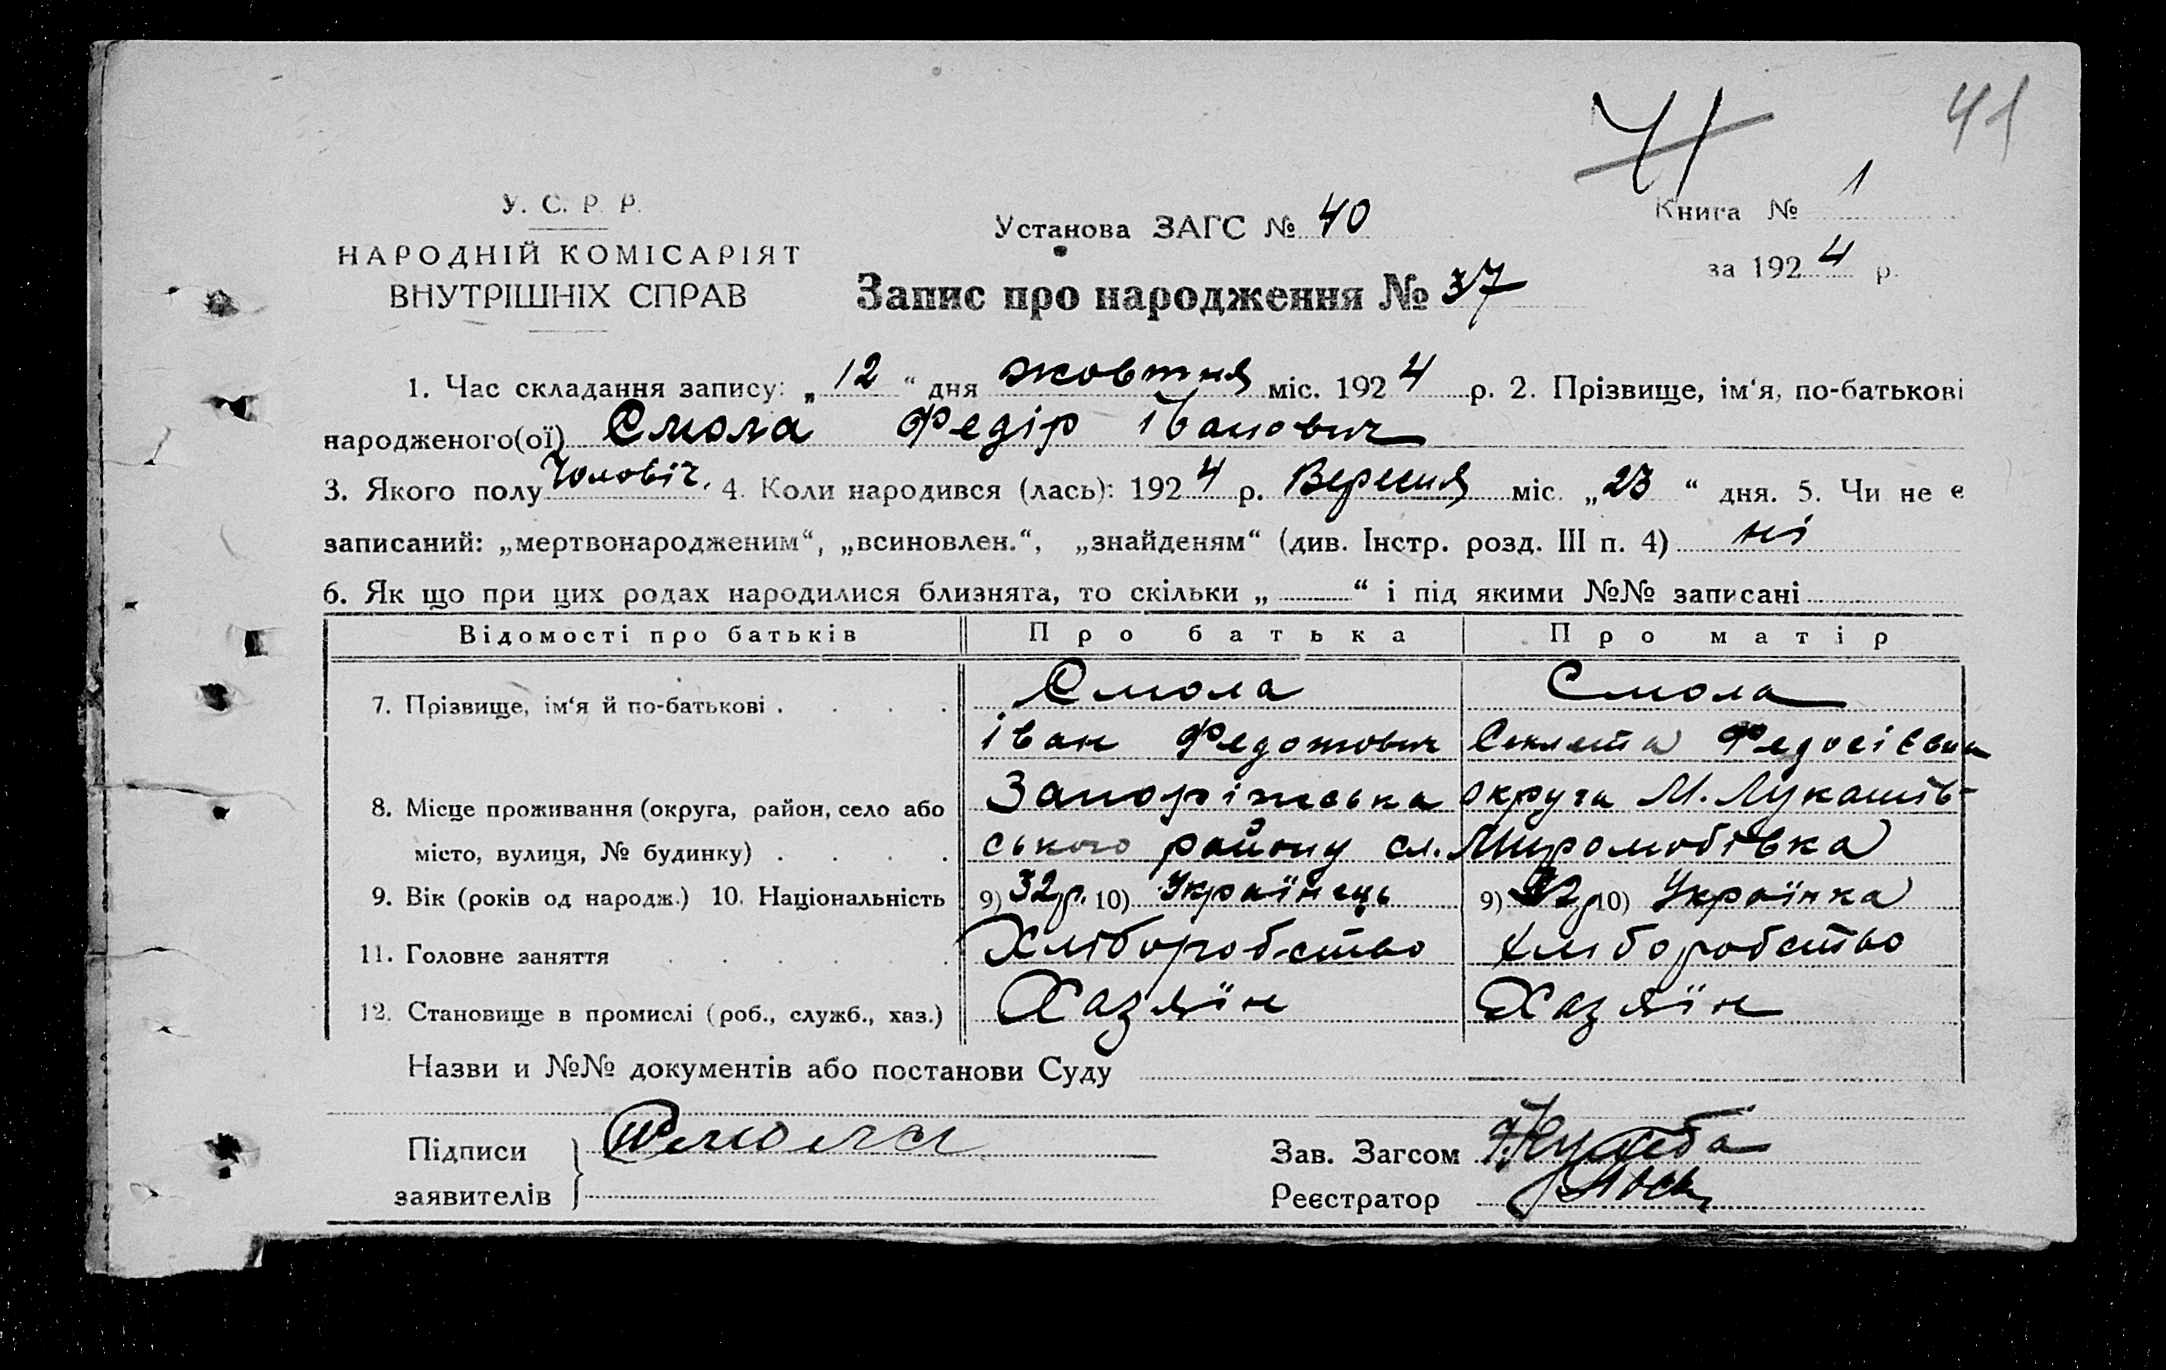 41
41
У. С. Р. Р.
НАРОДНІЙ КОМІСАРІЯТ
ВНУТРІШНІХ СПРАВ
Установа ЗАГС № 40
Книга № 1
за 1924 р.
Запис про народження № 37
1. Час складання запису: „12“ дня жовтня міс. 1924 р. 2. Прізвище, ім‘я, по-батькові
народженого(ої) Смола Федір Іванович
3. Якого полу Чоловіч. 4. Коли народився (лась): 1924 р. Вересня міс. „23“ дня. 5. Чи не є
записаний: „мертвонародженим“, „всиновлен.“, „знайденям“ (див. Інстр. розд. III п. 4) ні
6. Як що при цих родах народилися близнята, то скільки „ “ і під якими №№ записані
Відомості про батьків Про батька Про матір
7. Прізвище, ім‘я й по-батькові . . . . Смола Смола
Іван Федотович Секлета Федосіївна
8. Місце проживання (округа, район, село або Запоріжська округа М. Лукашів-
місто, вулиця, № будинку) . . . . ського району сл. Миролюбівка
9. Вік (років од народж.) 10. Національність 9) 32 р. 10) Українець 9) р. 10) Українка
11. Головне заняття . . . . . . Хліборобство Хліборобство
12. Становище в промислі (роб., служб., хаз.) Хазяїн Хазяїн
Назви и №№ документів або постанови Суду
Підписи Смола Зав. Загсом
заявителів Реєстратор